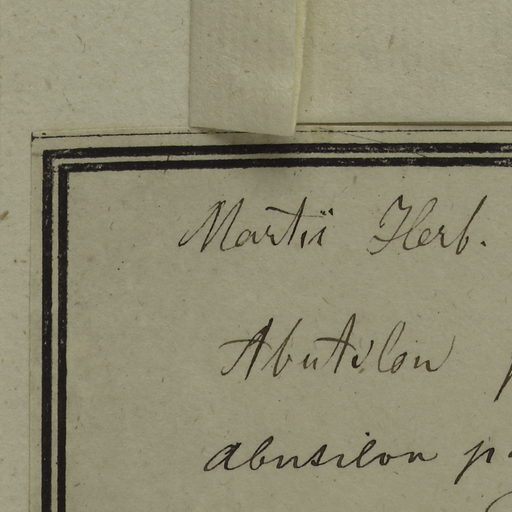 Martii Herb.
Abutilon
abusilon